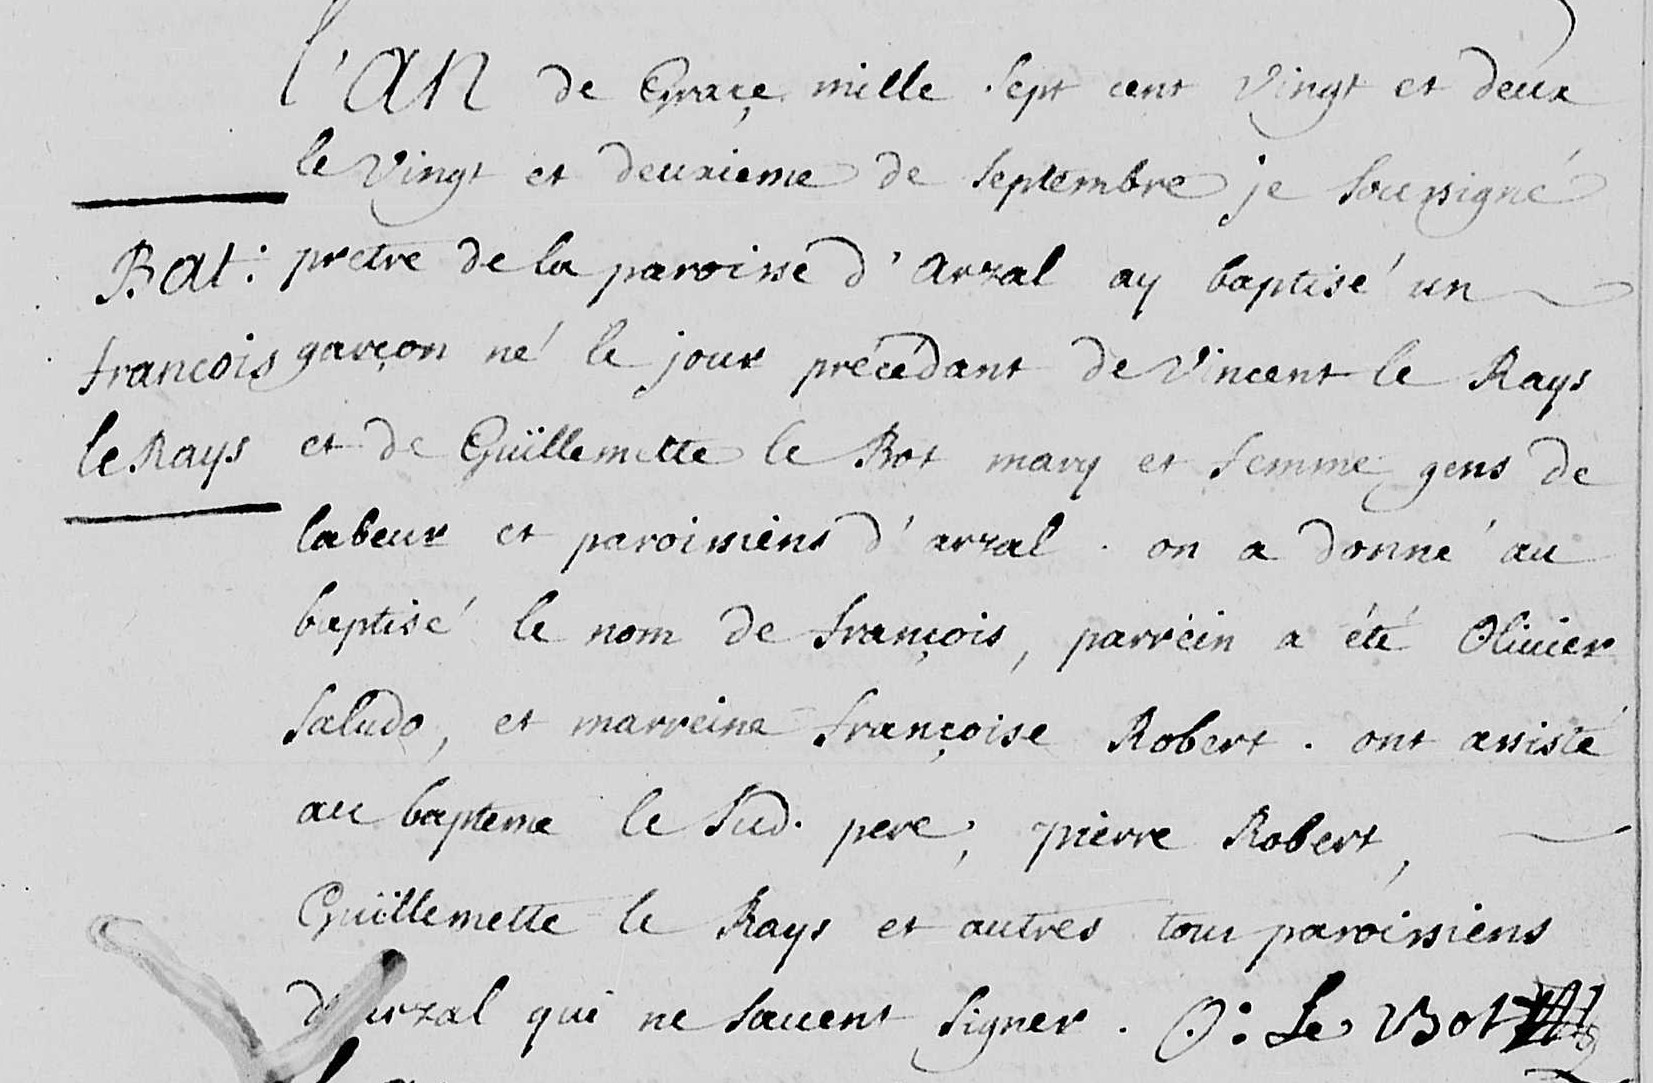 l'AN de Graçe mille sept cent vingt et deux
le vingt et deuxieme de septembre je soussigné
Bat: pretre de la paroisse d'Arzal ay baptisé un
francois garçon né le jour précédant de Vincent le Rays
le Rays et de Guillemette le Bot mary et femme gens de
labeur et paroissiens d'arzal . on a donné au
baptisé le nom de françois, parrein a été Olivier
Saludo, et marreine françoise Robert . ont assisté
au bapteme le sud. pere, pierre Robert,
Guillemette le Rays et autres tous paroissiens
d'arzal qui ne savent signer . O: Le Bot